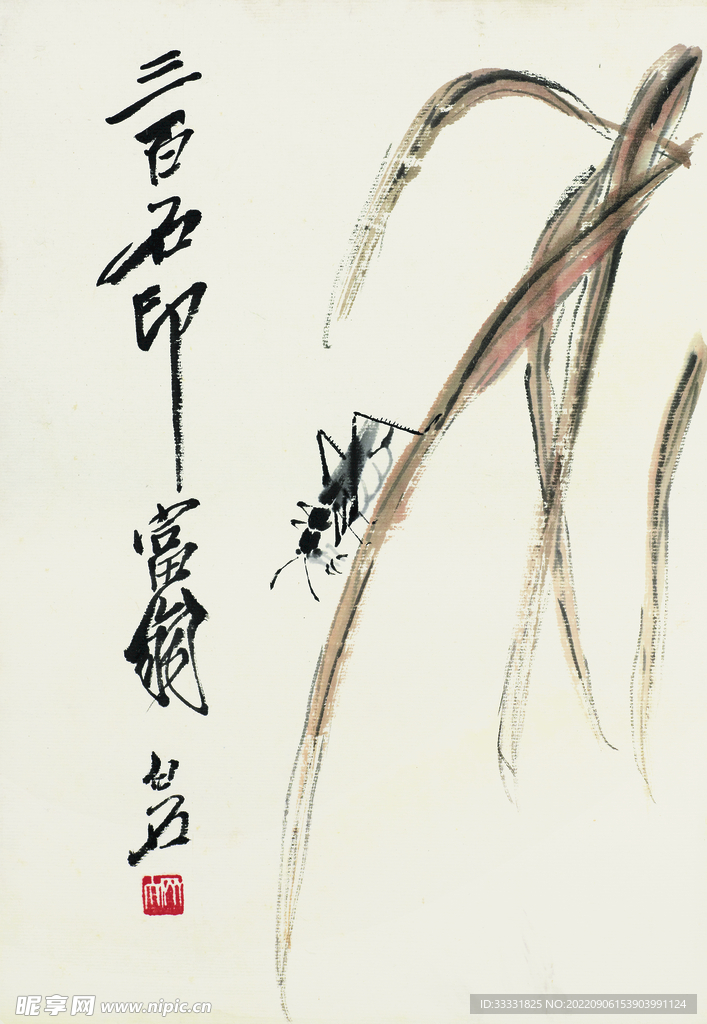 三百石印富翁
白石
昵享网 www.nipic.cn
ID:33331825 NO:20220906153903991124